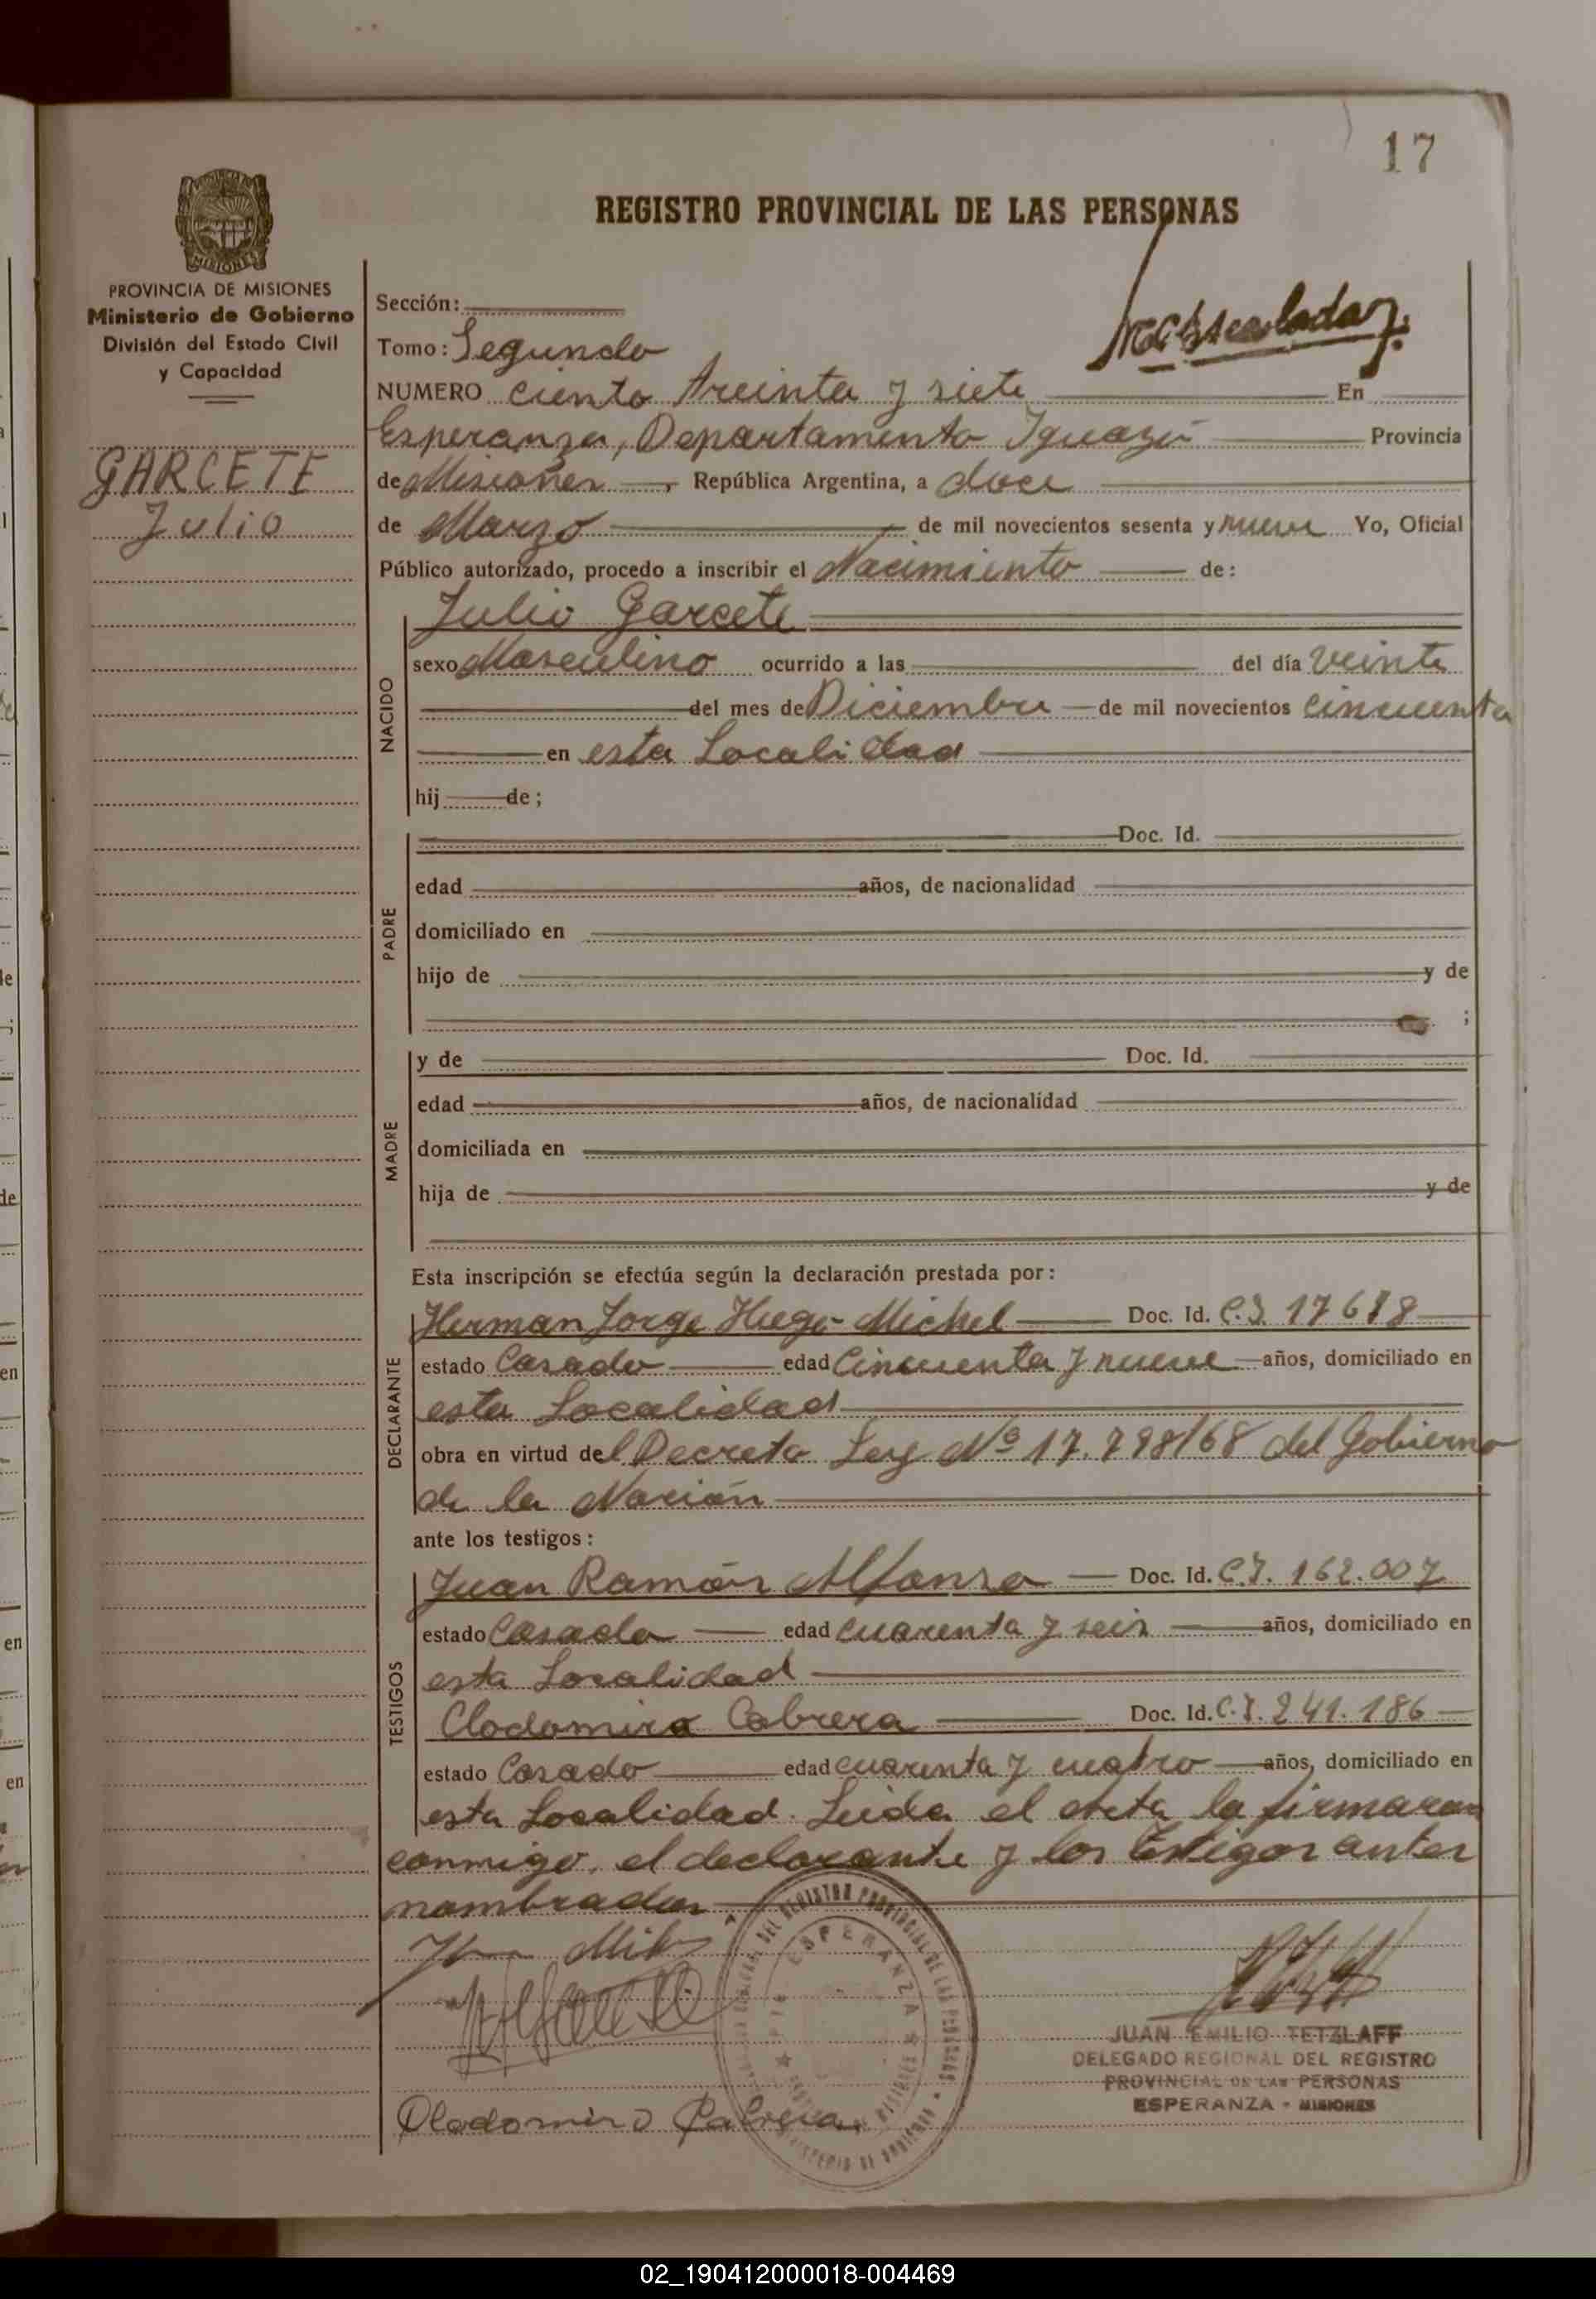 17
REGISTRO PROVINCIAL DE LAS PERSONAS
MISIONES
PROVINCIA DE MISIONES
Ministerio de Gobierno
División del Estado Civil
y Capacidad
GARCETE
Julio
Sección:
Tomo: Segundo
NUMERO ciento treinta y siete En
Esperanza, Departamento Iguazú Provincia
de Misiones, República Argentina, a doce
de Marzo de mil novecientos sesenta y nueve Yo, Oficial
Público autorizado, procedo a inscribir el Nacimiento de:
NACIDO
Julio Garcete
sexo Masculino ocurrido a las del día veinte
del mes de Diciembre de mil novecientos cincuenta
en esta Localidad
hij de;
PADRE
Doc. Id.
edad años, de nacionalidad
domiciliado en
hijo de y de
;
MADRE
y de Doc. Id.
edad años, de nacionalidad
domiciliada en
hija de y de
Esta inscripción se efectúa según la declaración prestada por:
DECLARANTE
Herman Jorge Hugo Michel Doc. Id. C.I. 17618
estado Casado edad Cincuenta y nueve años, domiciliado en
esta Localidad
obra en virtud del Decreto Ley Nº 17.798/68 del Gobierno
de la Nación
ante los testigos:
TESTIGOS
Juan Ramón Alfonso Doc. Id. C.I. 162.007
estado Casado edad cuarenta y seis años, domiciliado en
esta Localidad
Clodomiro Cabrera Doc. Id. C.I. 241.186
estado Casado edad cuarenta y cuatro años, domiciliado en
esta Localidad. Leida el acta la firmaron
conmigo, el declarante y los testigos antes
nombrados
ESPERANZA
Clodomiro Cabrera
JUAN EMILIO TETZLAFF
DELEGADO REGIONAL DEL REGISTRO
PROVINCIAL DE LAS PERSONAS
ESPERANZA - MISIONES
02_190412000018-004469